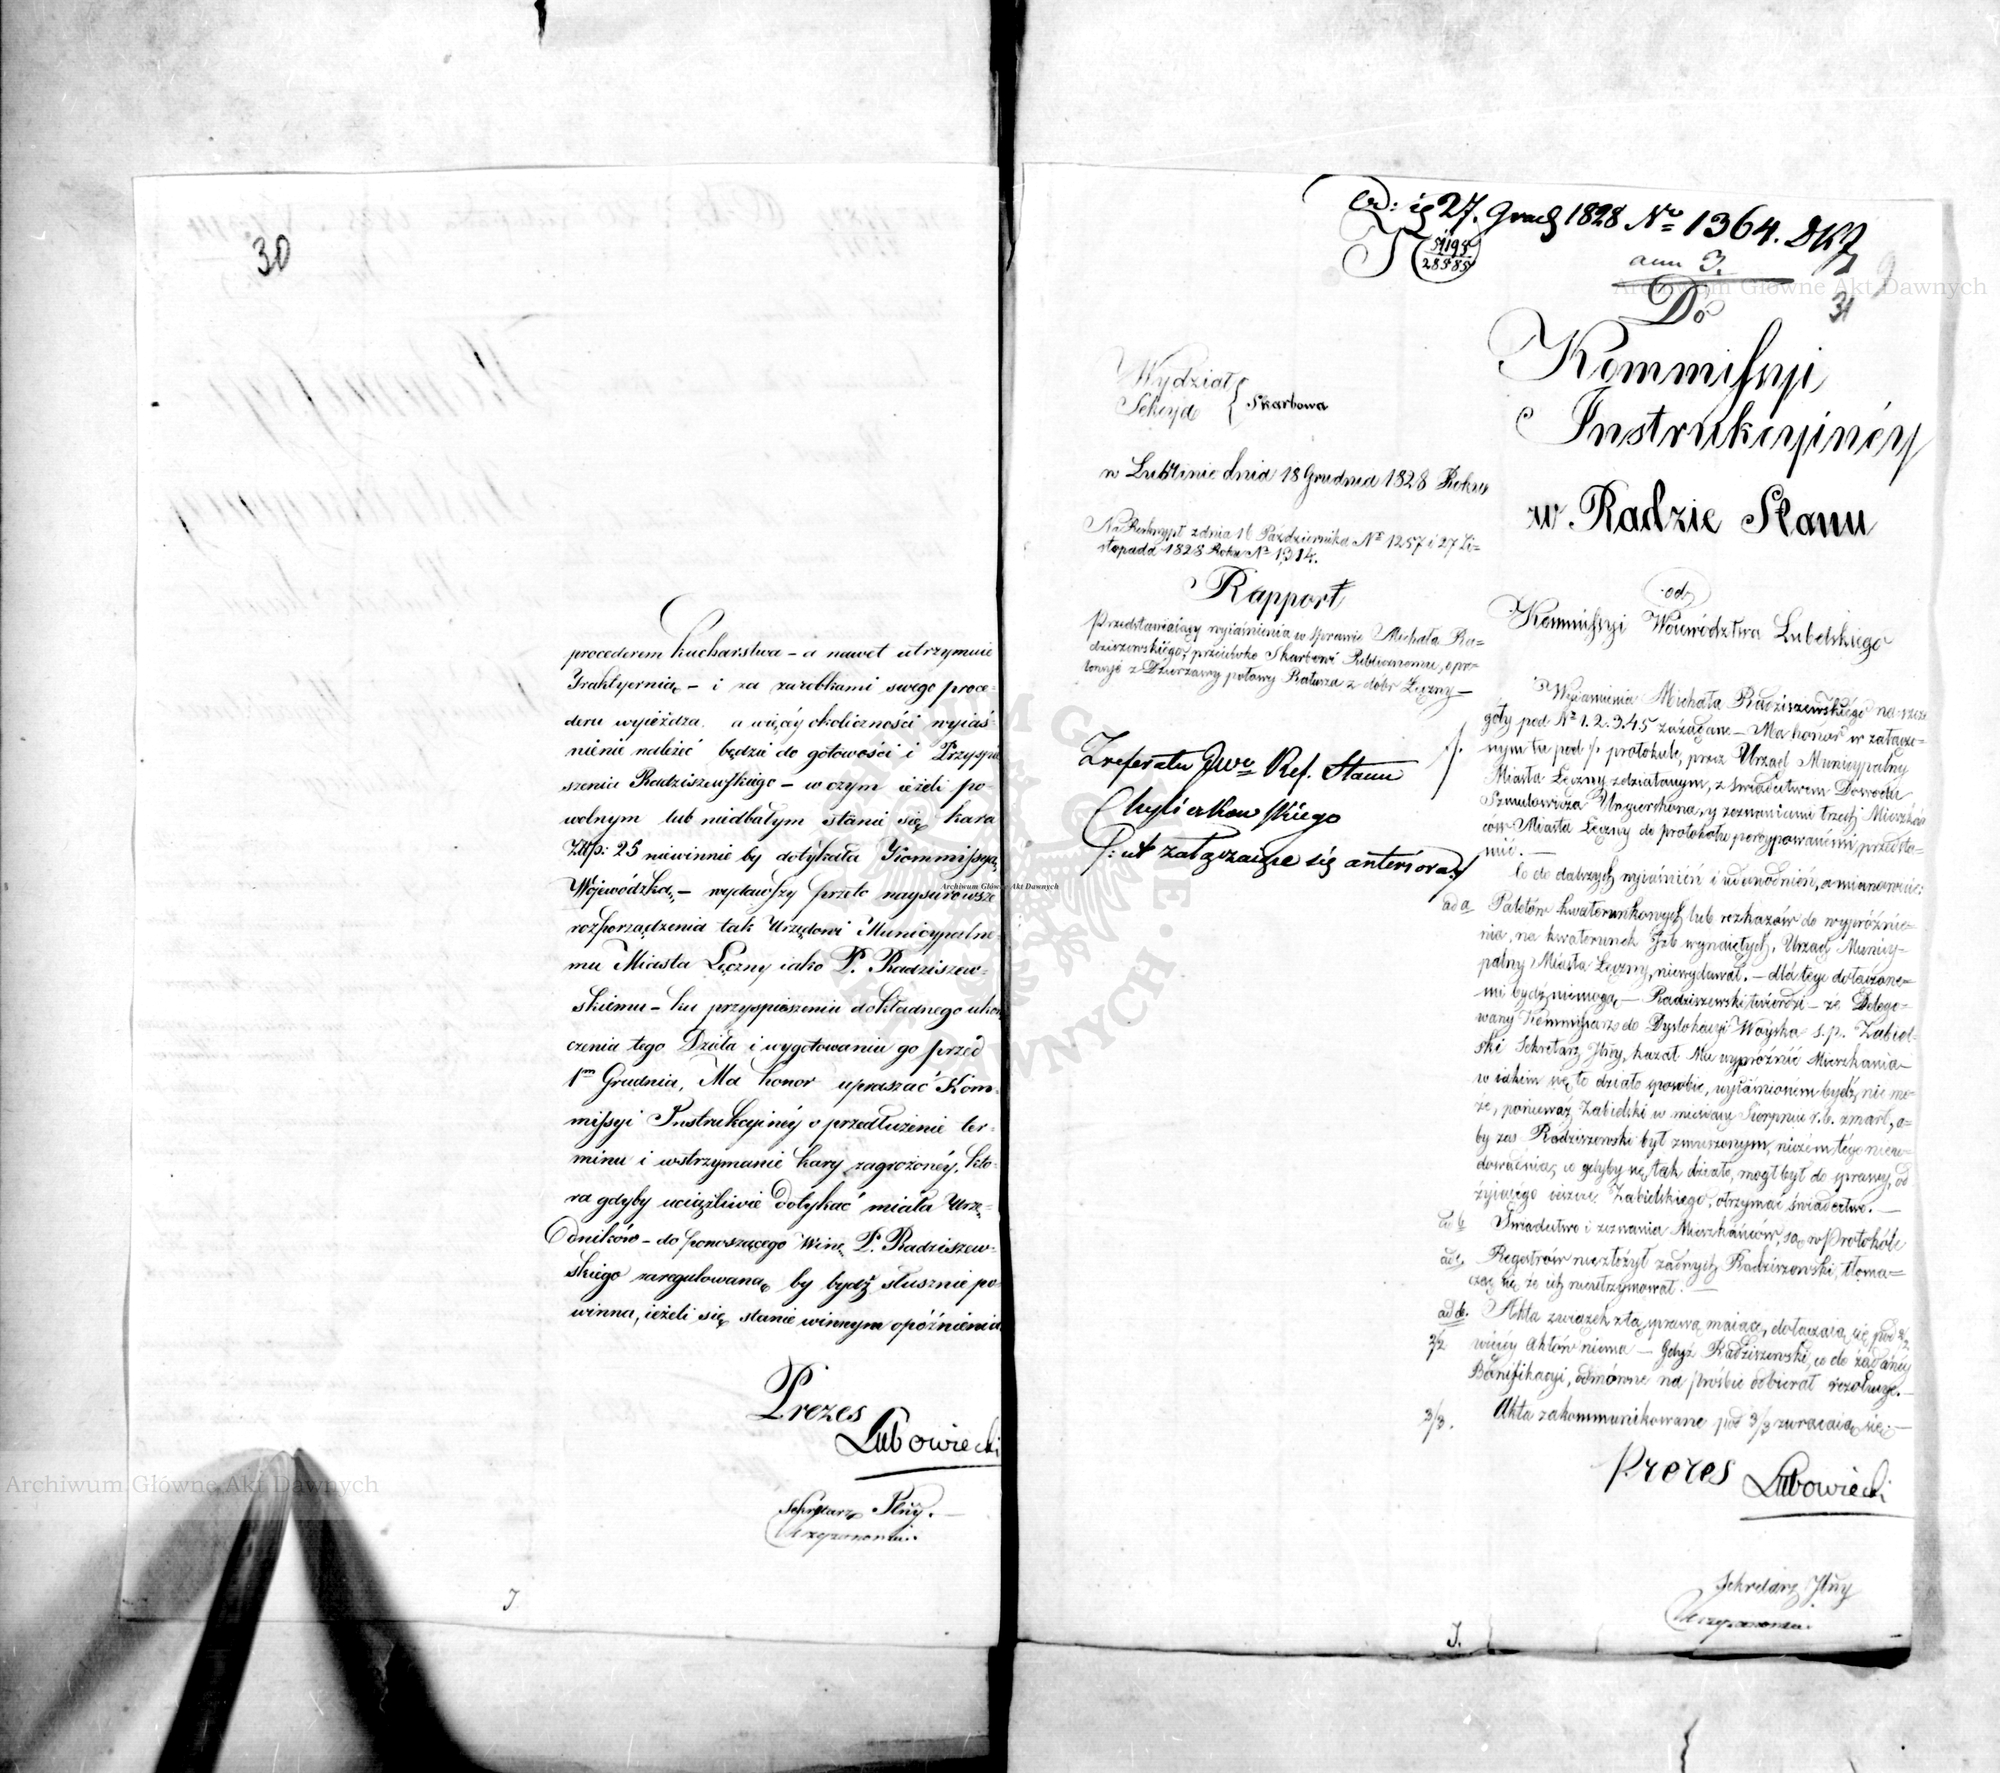 30
procederem kucharstwa – a nawet utrzymuie
Traktyernią – i za zarobkami swego proce-
deru wyieżdza. a więcéy okoliczności wyiaś-
nienie należéć będzie do gotowości i Przyspie
szenia Radziszewskiego – w czym ieżeli po-
wolnym lub niedbałym stanie się kara
Złłp: 25 niewinnie by dotykała Kommissyą
Wojewódzką, – wydawszy przeto naysurowsze
rozporządzenia tak Urzędowi Municypalne-
mu Miasta Łęczny iako P. Radziszew-
skiemu – ku przyspieszeniu dokładnego ukoń
czenia tego Dzieła i wygotowaniu go przed
1m Grudnia, Ma honor upraszać Kom-
missyi Instrukcyinéy o przedłużenie ter-
minu i wstrzymanie kary zagrożonéy, któ-
ra gdyby uciążliwie dotykać miała Urzę-
dników – do ponoszącego Winę P. Radziszew-
skiego zaregulowaną by bydź słusznie po
winna, ieżeli się stanie winnym opóźnienia
Prezes
Lubowiecki
Sekretarz Jlny.
J.
27. Grud 1828 No 1364. DKJ
28585
ann 3.
31
Do
Kommissyi
Instrukcyinéy
w Radzie Stanu
Wydział
Sekcya
Skarbowa
w Lublinie dnia 18 Grudnia 1828 Roku
Na Reskrypt z dnia 16 Października No 1257 i 27 Li-
stopada 1828 Roku No 1314.
Rapport
Przedstawiaiący wyiaśnienia w sprawie Michała Ra-
dziszewskiego, przeciwko Skarbowi Publicznemu, o pre-
tensye z Dzierzawy połowy Ratusza z dóbr Łęczny –
Z referatu JWo Ref. Stanu
Chylickowskiego
/: ut załączaiące się anteriora :/
od
Kommissyi Województwa Lubelskiego
Wyiaśnienia Michała Radziszewskiego na szcze
góły pod No 1.2.3.4.5 zażądane – Ma honor w załączo-
nym tu pod /. protokule, przez Urząd Municypalny
Miasta Łęczny zdziałanym, z świadectwem Dawida
Szmulowicza Ungierchona, y zeznaniami trzech Mieszkań
ców Miasta Łęczny do protokułu porozpisowanémi, przedsta-
wić. –
Co do dalszych wyiaśnień i udowodnień, a mianowicie:
ad a Paletów kwaterunkowych lub rozkazów do wypróżnie-
nia, na kwaterunek Jzb wynaiętych, Urząd Municy-
palny Miasta Łęczny, niewydawał. – dla tego dołączone-
mi bydź niemogą – Radziszewski twierdzi – że Delego-
wany Kommissarz do Dyslokacyi Woyska s.p. Zabiel-
ski Sekretarz Jlny, kazał Mu wypróżnić Mieszkania –
w iakim się to działo sposobie, wyiaśnioném bydź nie mo-
że, ponieważ Zabielski w miesiącu Sierpniu r.b. zmarł, a-
by zas Radziszewski był zmuszonym, niczem tego nieu-
dowadnia, a gdyby się tak działo, mógł był do sprawy, od
żyiącego ieszcze Zabielskiego, otrzymać świadectwo. –
ad b. Świadectwo i zeznania Mieszkańców, są w Protokóle
ad c. Regestrów niezłożył żadnych Radziszewski, tłoma-
cząc się że ich nieutrzymował. –
ad d. Akta związek z tą sprawą maiące, dołączaią się pod 2/2
2/2 więcéy Aktów niema – Gdyż Radziszewski, co do żądanéy
Bonifikacyi, odmówne na prośbie odbierał rezolucye. –
3/3. Akta zakommunikowane pod 3/3 zwracaią się –
Prezes Lubowiecki
Sekretarz Jlny
J.
Archiwum Główne Akt Dawnych
Archiwum Główne Akt Dawnych
Archiwum Główne Akt Dawnych